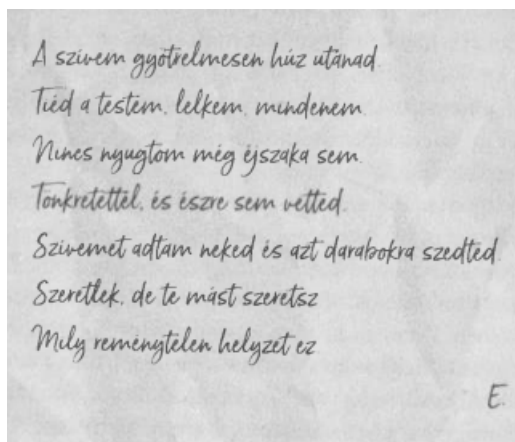 A szívem gyötrelmesen húz utánad.
Tiéd a testem, lelkem, mindenem.
Nincs nyugtom még éjszaka sem.
Tönkretettél, és észre sem vetted.
Szívemet adtam neked és azt darabokra szedted.
Szeretlek, de te mást szeretsz
Mily reménytelen helyzet ez
E.